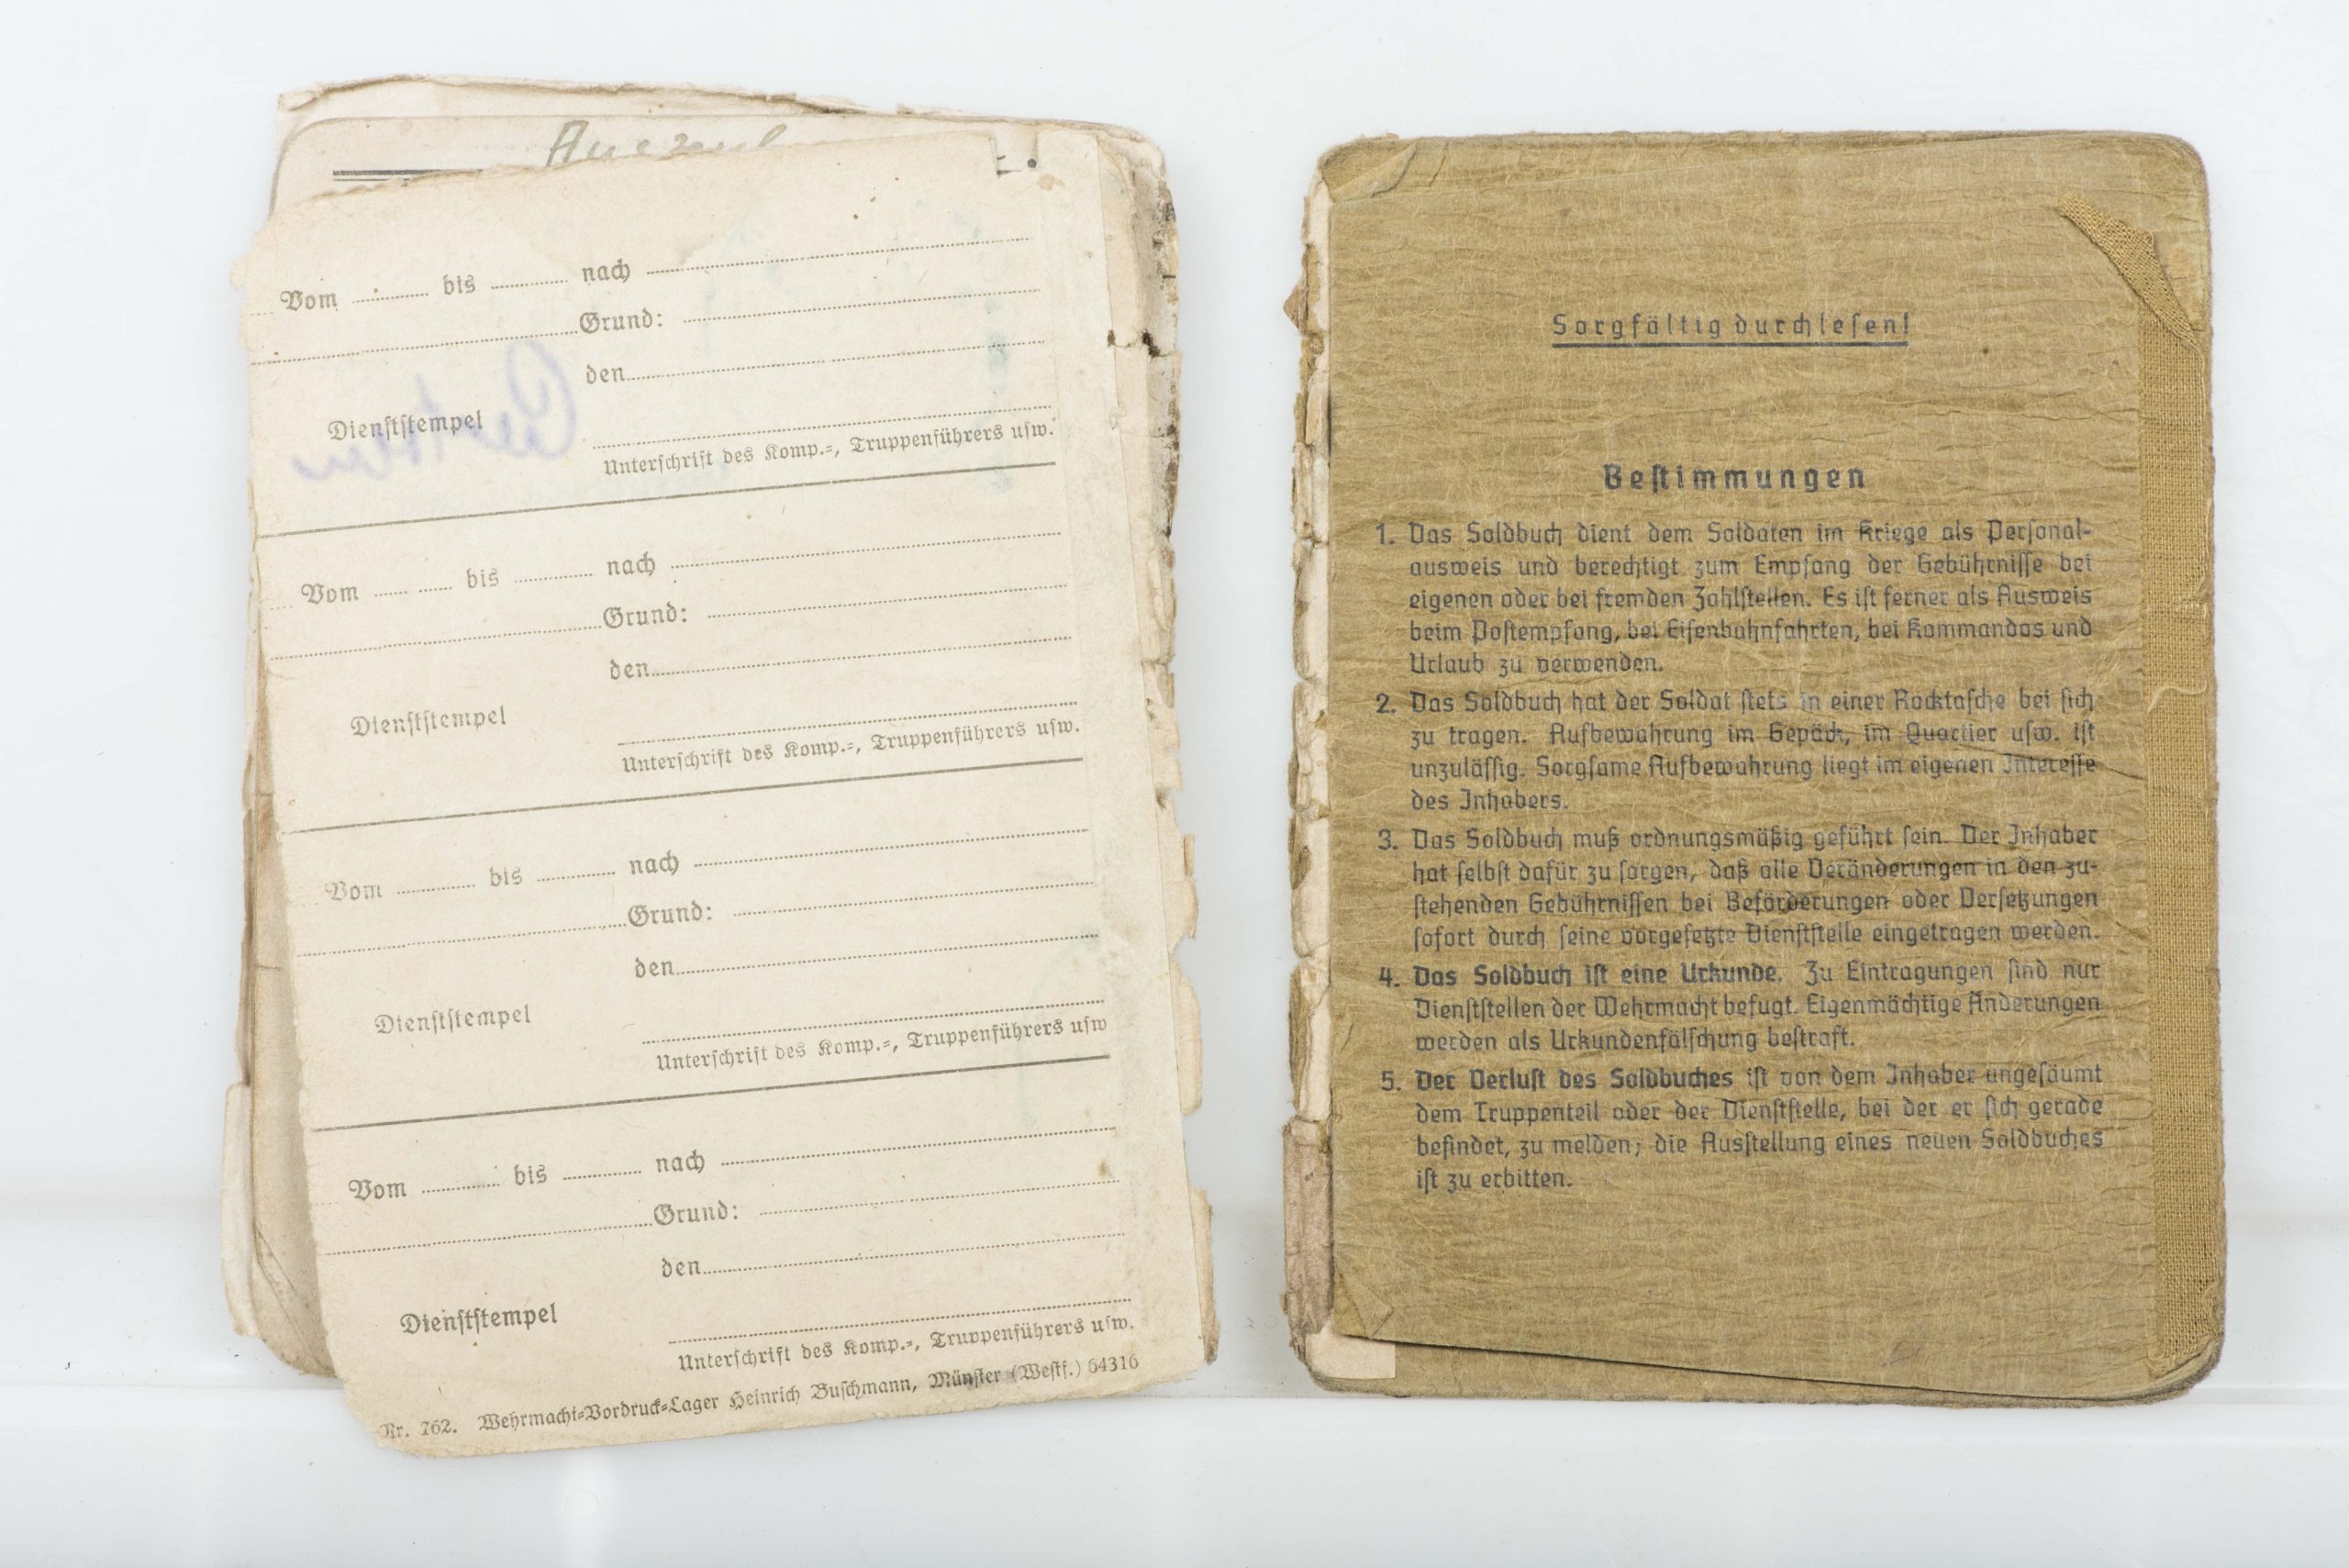 Vom ........ bis ........ nach ........
Grund: ........
den ........
Dienststempel
Unterschrift des Komp.=, Truppenführers usw.
Vom ........ bis ........ nach ........
Grund: ........
den ........
Dienststempel
Unterschrift des Komp.=, Truppenführers usw.
Vom ........ bis ........ nach ........
Grund: ........
den ........
Dienststempel
Unterschrift des Komp.=, Truppenführers usw
Vom ........ bis ........ nach ........
Grund: ........
den ........
Dienststempel
Unterschrift des Komp.=, Truppenführers usw.
Nr. 762. Wehrmacht=Vordruck=Lager Heinrich Buschmann, Münster (Westf.) 64316
Sorgfältig durchlesen!
Bestimmungen
1. Das Soldbuch dient dem Soldaten im Kriege als Personal-
ausweis und berechtigt zum Empfang der Gebührnisse bei
eigenen oder bei fremden Zahlstellen. Es ist ferner als Ausweis
beim Postempfang, bei Eisenbahnfahrten, bei Kommandos und
Urlaub zu verwenden.
2. Das Soldbuch hat der Soldat stets in einer Rocktasche bei sich
zu tragen. Aufbewahrung im Gepäck, im Quartier usw. ist
unzulässig. Sorgsame Aufbewahrung liegt im eigenen Interesse
des Inhabers.
3. Das Soldbuch muß ordnungsmäßig geführt sein. Der Inhaber
hat selbst dafür zu sorgen, daß alle Veränderungen in den zu-
stehenden Gebührnissen bei Beförderungen oder Versetzungen
sofort durch seine vorgesetzte Dienststelle eingetragen werden.
4. Das Soldbuch ist eine Urkunde. Zu Eintragungen sind nur
Dienststellen der Wehrmacht befugt. Eigenmächtige Änderungen
werden als Urkundenfälschung bestraft.
5. Der Verlust des Soldbuches ist von dem Inhaber ungesäumt
dem Truppenteil oder der Dienststelle, bei der er sich gerade
befindet, zu melden; die Ausstellung eines neuen Soldbuches
ist zu erbitten.